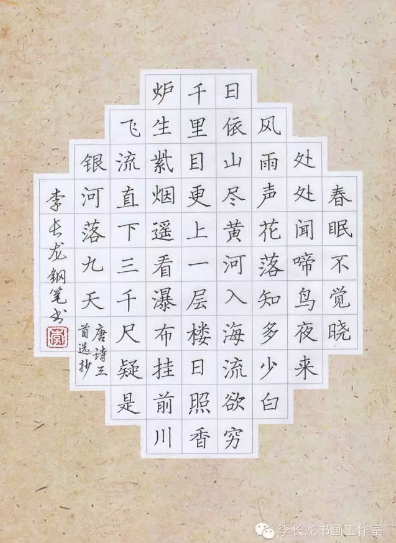 春眠不觉晓
处处闻啼鸟夜来
风雨声花落知多少白
日依山尽黄河入海流欲穷
千里目更上一层楼日照香
炉生紫烟遥看瀑布挂前川
飞流直下三千尺疑是
银河落九天
唐诗三
首选抄
李长龙钢笔书
李长龙书画工作室